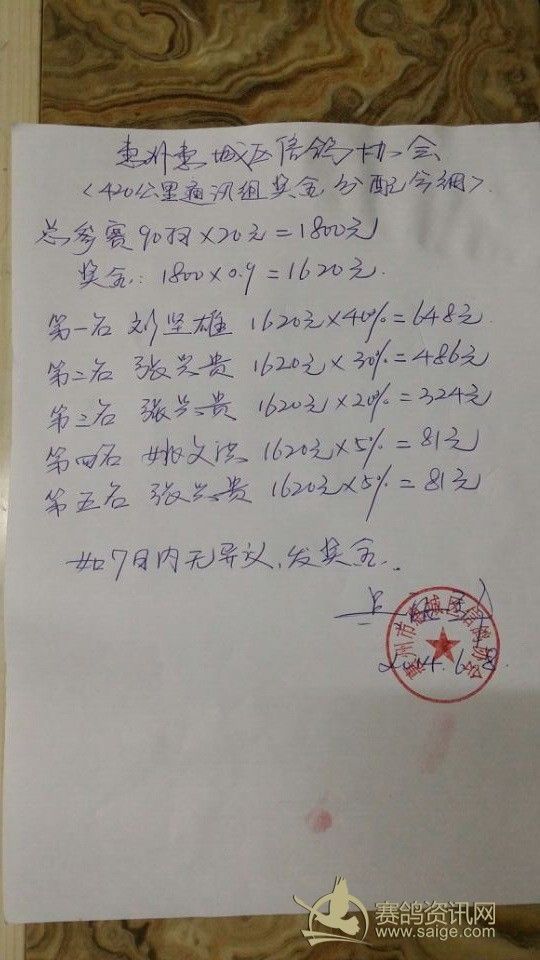 惠州惠城区信鸽协会
<420公里通讯组奖金分配明细>
总参赛90羽×20元=1800元
奖金:1800×0.9=1620元.
第一名 刘坚雄 1620元×40%=648元
第二名 张兴贵 1620元×30%=486元
第三名 张兴贵 1620元×20%=324元
第四名 姚文洪 1620元×5%=81元
第五名 张兴贵 1620元×5%=81元
如7日内无异议,发奖金..
惠州市惠城区信鸽协会
2014.6.8.
赛鸽资讯网
www.saige.com